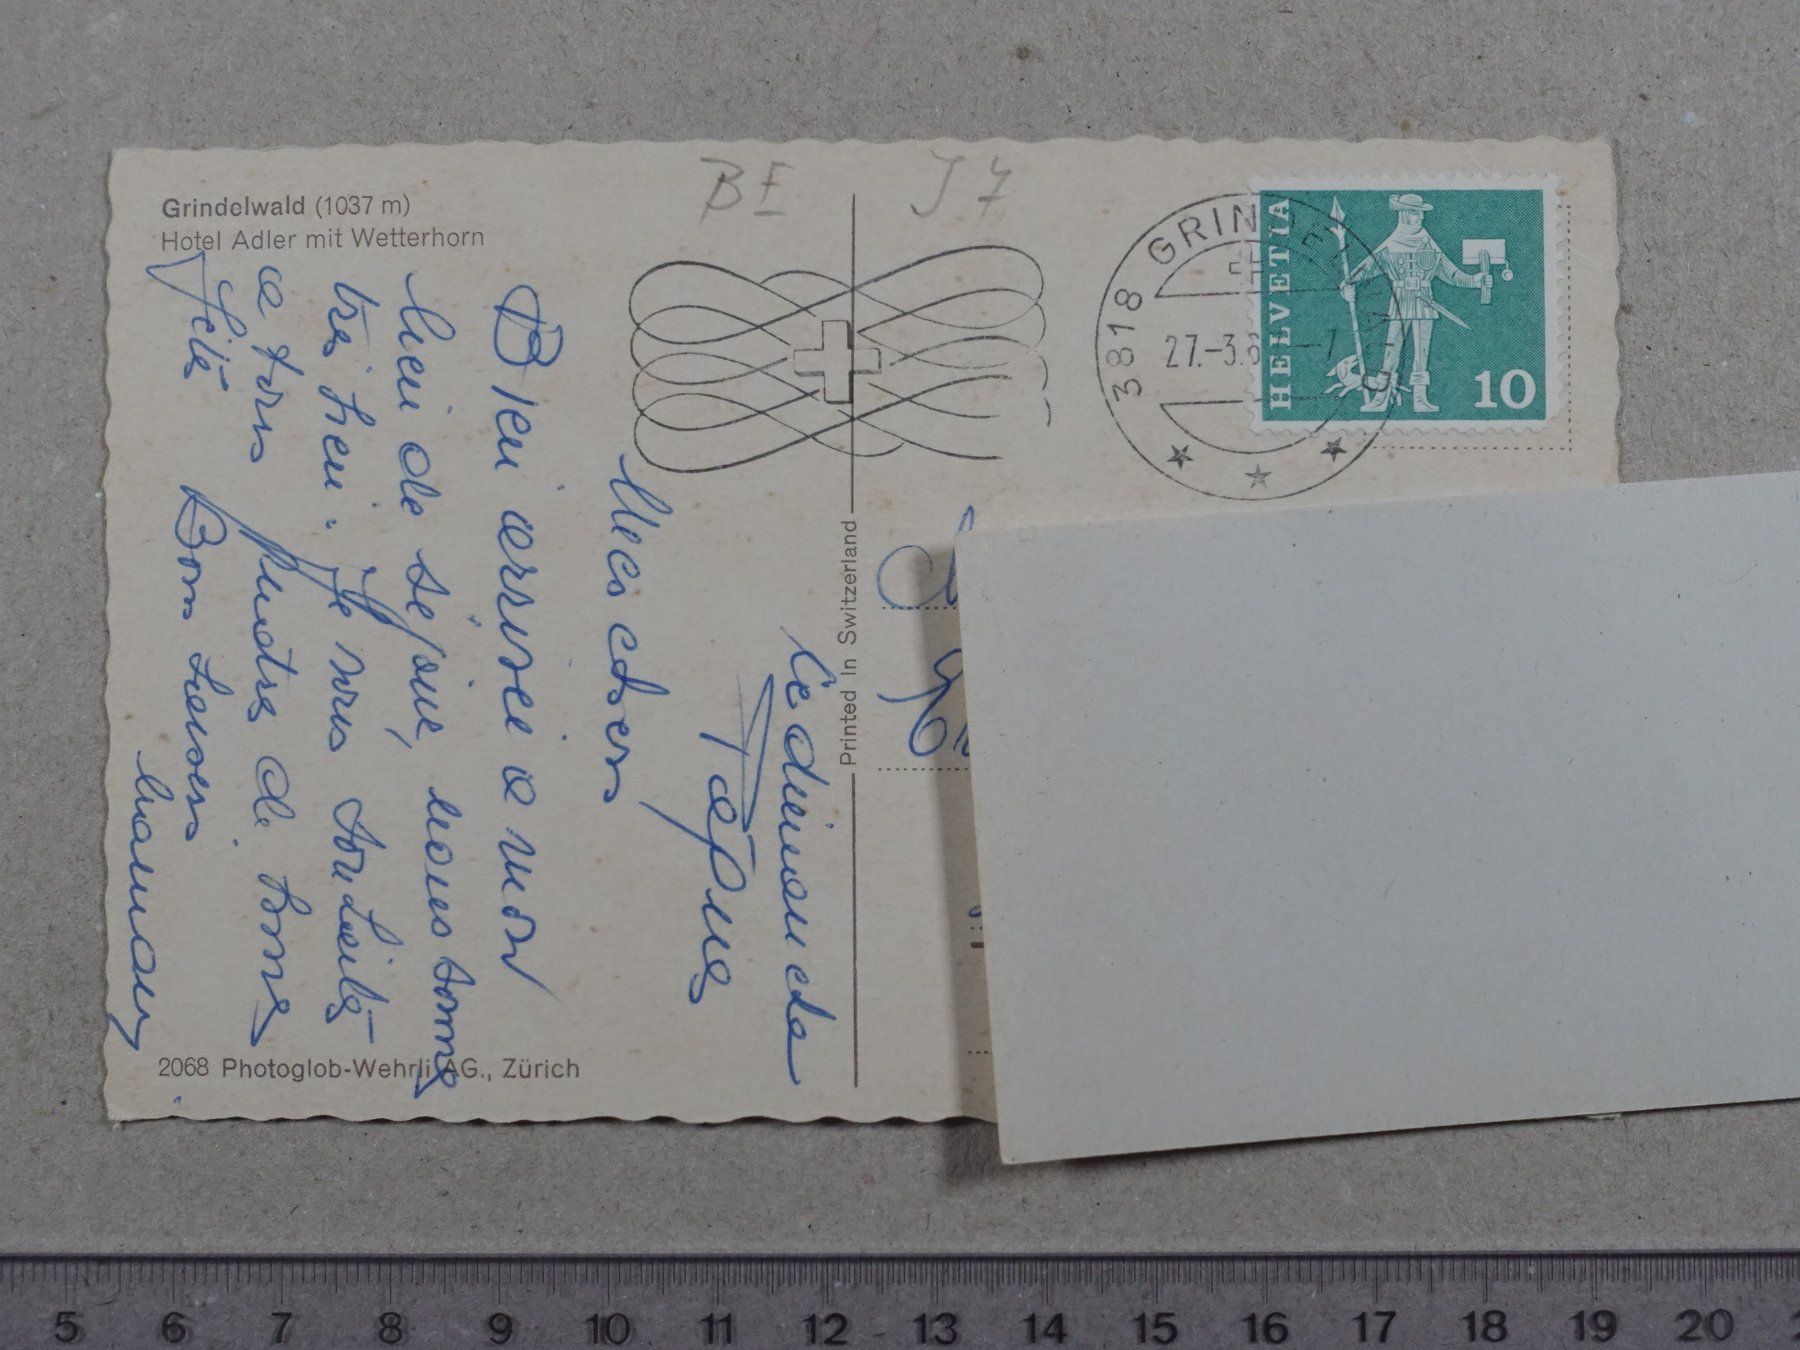 Grindelwald (1037 m)
Hotel Adler mit Wetterhorn
BE J7
3818 GRINDELWALD
27.-3.6 -7
HELVETIA
10
le dimanche
Pâques
Mes chers
Bien arrivée a mon
lieu de séjour, nous somme
très bien. Je vous souhaite
a tous quatre de bonne
fête Bons baisers
maman
Printed in Switzerland
2068 Photoglob-Wehrli AG., Zürich
5 6 7 8 9 10 11 12 13 14 15 16 17 18 19 20